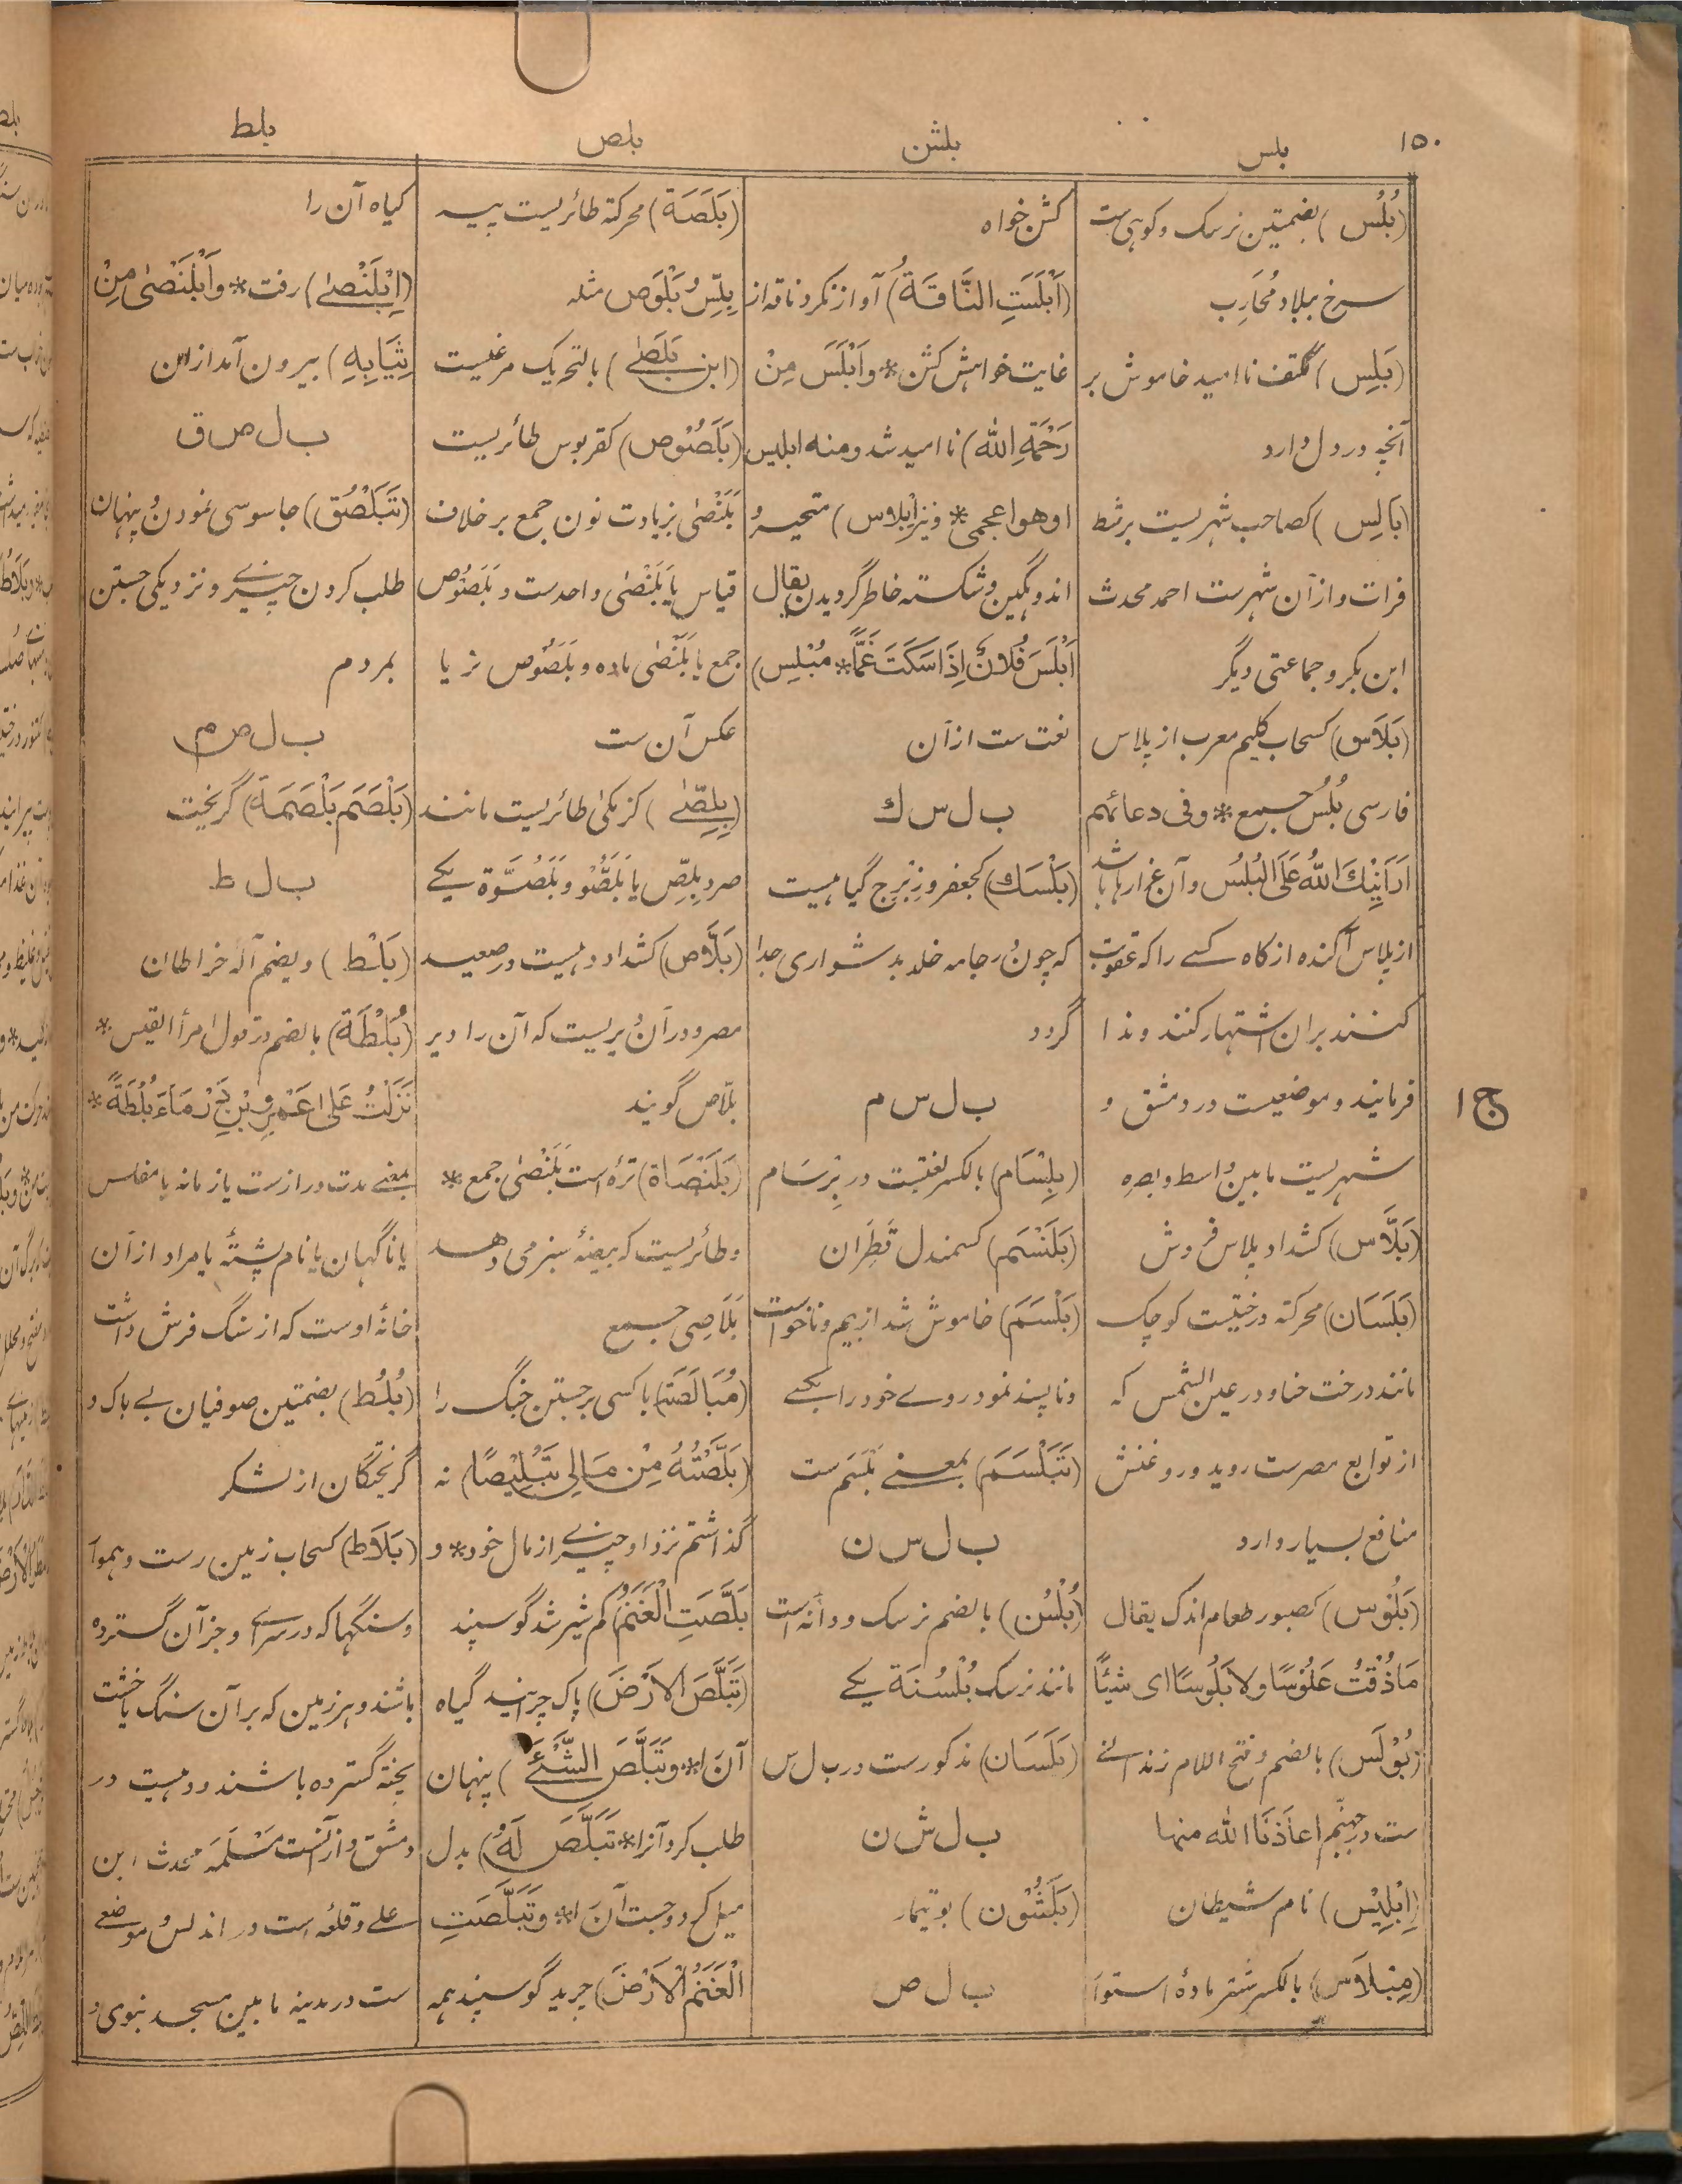 ۱۵۰
بلس
بلشن
بلص
بلط
(بُلُس) بضمتین نرسک و کوهی ست
سرخ ببلاد مُحَارِب
(بَلِس) ککتف ناامید خاموش بر
آنچه در دل دارد
(بَالِس) کصاحب شهریست بر شط
فرات و ازآن شهرست احمد محدث
ابن بکر و جماعتی دیگر
(بَلَاس) کسحاب گلیم معرب از پلاس
فارسی بُلُسٌ جمیع * وفی دعائهم
اَرَانِيْكَ اللهُ عَلَى البُلُس و آن غرارها باشد
از پلاس آگنده از کاه کسے را که عقوبت
کنند بران اشتهار کنند و ندا
فرمایند و موضعیست در دمشق و
شهریست مابین واسط و بصره
(بَلَّاس) کشداد پلاس فروش
(بَلَسَان) محرکة درختیست کوچک
مانند درخت حنا و در عین الشمس که
از توابع مصرست روید و روغنش
منافع بسیار دارد
(بَلُوْس) کصبور طعام اندک یقال
مَاذُقْتُ عَلُوْسًا ولا بَلُوسًا ای شیئًا
(بُوْلَس) بالضم و فتح اللام زندانے
ست در جهنّم اعاذَنَا الله منها
(اِبْلِيْس) نام شیطان
(مِبْلَاس) بالکسر شتر مادۀ استوار
کشن خواه
(اَبْلَسَتِ النَّاقَةُ) آواز نکرد ناقه از
غایت خواهش کشن * و اَبْلَسَ مِنْ
رَحْمَةِ الله) ناامید شد و منه ابلیس
او هوا عجمی * و نیز اِبْلاس) متحیر و
اندوهگین و شکسته خاطر گردیدن یقال
اَبْلَسَ فُلَانٌ اِذَا سَكَتَ غَمًّا * مُبْلِس)
نعت ست از آن
ب ل س ك
(بَلْسَك) کجعفر و زِبْرِج گیاهیست
که چون در جامه خلد بدشواری جدا
گردد
ب ل س م
(بِلْسَام) بالکسر لغتیست در بِرْسَام
(بَلَنْسَم) کسمندل قَطِرَان
(بَلْسَمَ) خاموش شد از بیم و ناخواست
و ناپسند نمود روے خود را بکسے
(تَبَلْسَمَ) بمعنے بَلْسَم ست
ب ل س ن
(بُلْسُن) بالضم نرسک و دانه است
مانند نرسک بُلْسُنَة یکے
(بَلَسَان) مذکورست در ب ل س
ب ل ش ن
(بَلَشُوْن) بوتیمار
ب ل ص
(بَلَصَة) محرکة طائریست پیسه
بِلِّصٌ و بَلْوَص مثله
(ابن بَلَصٰے) بالتحریک مرغیست
(بَلَصُوْص) کقربوس طائریست
بَلَنْصٰی بزیادت نون جمع بر خلاف
قیاس یا بَلَنْصٰی واحدست و بَلَصُوْص
جمع یا بَلَنْصٰی ماده و بَلَصُوْص نر یا
عکس آن ست
(بِلِصّٰے) کزِمکّیٰ طائریست مانند
صرد بِلِّص یا بَلَصُّو و بَلَصُوَّة یکے
(بَلَّاص) کشداد دهیست در صعید
مصر و در آن دیریست که آن را دیر
بلّاص گویند
(بَلَنْصَاة) تره است بَلَنْصٰی جمع *
و طائریست که بیضۀ سبز می دهد
بَلَاصِی جمع
(مُبَالَصَة) با کسی برجستن جنگ را
(بَلَّصْتُهُ مِنْ مَالِی تَبْلِيْصًا) نه
گذاشتم نزد او چیزے از مال خود * و
بَلَّصَتِ الْغَنَمُ) کم شیر شد گوسپند
(تَبَلَّصَ الاَرْضَ) پاک چرانید گیاه
آن را * و تَبَلَّصَ الشَّئَ) پنهان
طلب کرد آنرا * تَبَلَّصَ لَهُ) بدل
میل کرد و جست آن را * و تَبَلَّصَتِ
الْغَنَمُ الاَرْضَ) چرید گوسپند همه
گیاه آن را
(اِبْلَنْصٰے) رفت * و اَبْلَنْصٰی مِنْ
ثِيَابِهِ) بیرون آمد از ان
ب ل ص ق
(تَبَلْصُق) جاسوسی نمودن و پنهان
طلب کردن چیزے و نزدیکی جستن
بمردم
ب ل ص م
(بَلْصَم بَلْصَمَةً) گریخت
ب ل ط
(بَلْط) و بضم آلۀ خراطان
(بُلْطَة) بالضم در قول امرأ القیس *
نَزَلْتُ عَلَى عَمْرِو بْنِ دَرْمَاءَ بُلْطَةً *
بمعنے مدت دراز ست یا زمانه یا مفلس
یا ناگهان یا نام پشتۀ یا مراد از آن
خانۀ اوست که از سنگ فرش داشت
(بُلُط) بضمتین صوفیان بے باک و
گریختگان از لشکر
(بَلَاط) کسحاب زمین رست و هموار
و سنگها که در سراے و جز آن گسترده
باشند و هر زمین که بر آن سنگ یا خشت
پخته گسترده باشند و دهیست در
دمشق و ازآنست مَسْلَمَة محدث ابن
علے و قلعه است در اندلس و موضعے
ست در مدینه مابین مسجد نبوی و
ج ۱